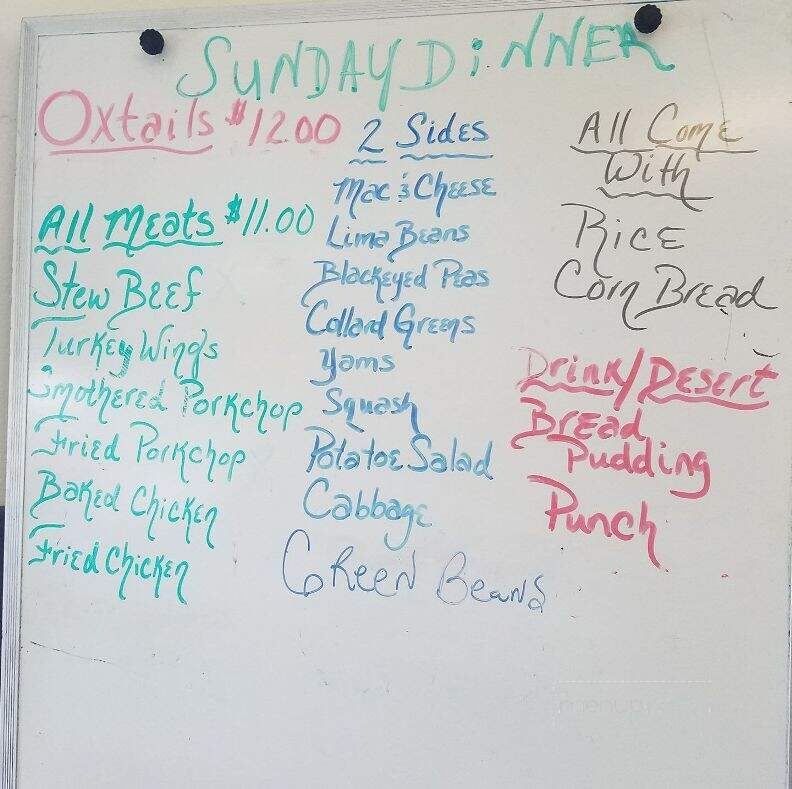 SUNDAY DINNER
Oxtails $12.00
All Meats $11.00
Stew Beef
Turkey Wings
Smothered Porkchop
Fried Porkchop
Baked Chicken
Fried Chicken
2 Sides
Mac & Cheese
Lima Beans
Blackeyed Peas
Collard Greens
Yams
Squash
Potatoe Salad
Cabbage
Green Beans
All Come
With
Rice
Corn Bread
Drink/Desert
Bread
Pudding
Punch